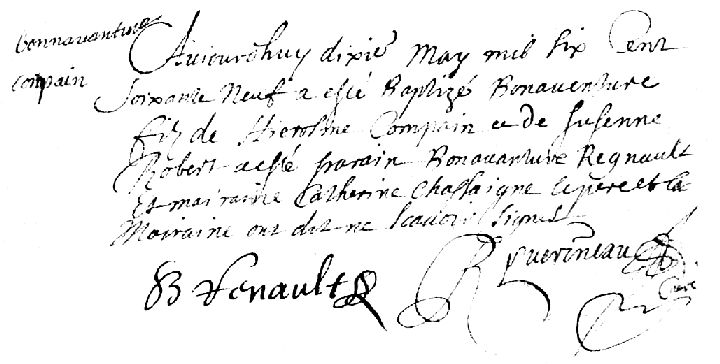 bonnavanture
conpain
Aujourdhuy dixie May mil six Cent
soixante Neuf a esté Baptizé Bonaventure
filz de Hierosme Compain et de susenne
Robert a esté parain Bonavanture Regnault
et mairaine Catherine Chassaigne le pere et la
Mairaine ont dit ne scavoir signer
B Renault
R Guerineau
Curé